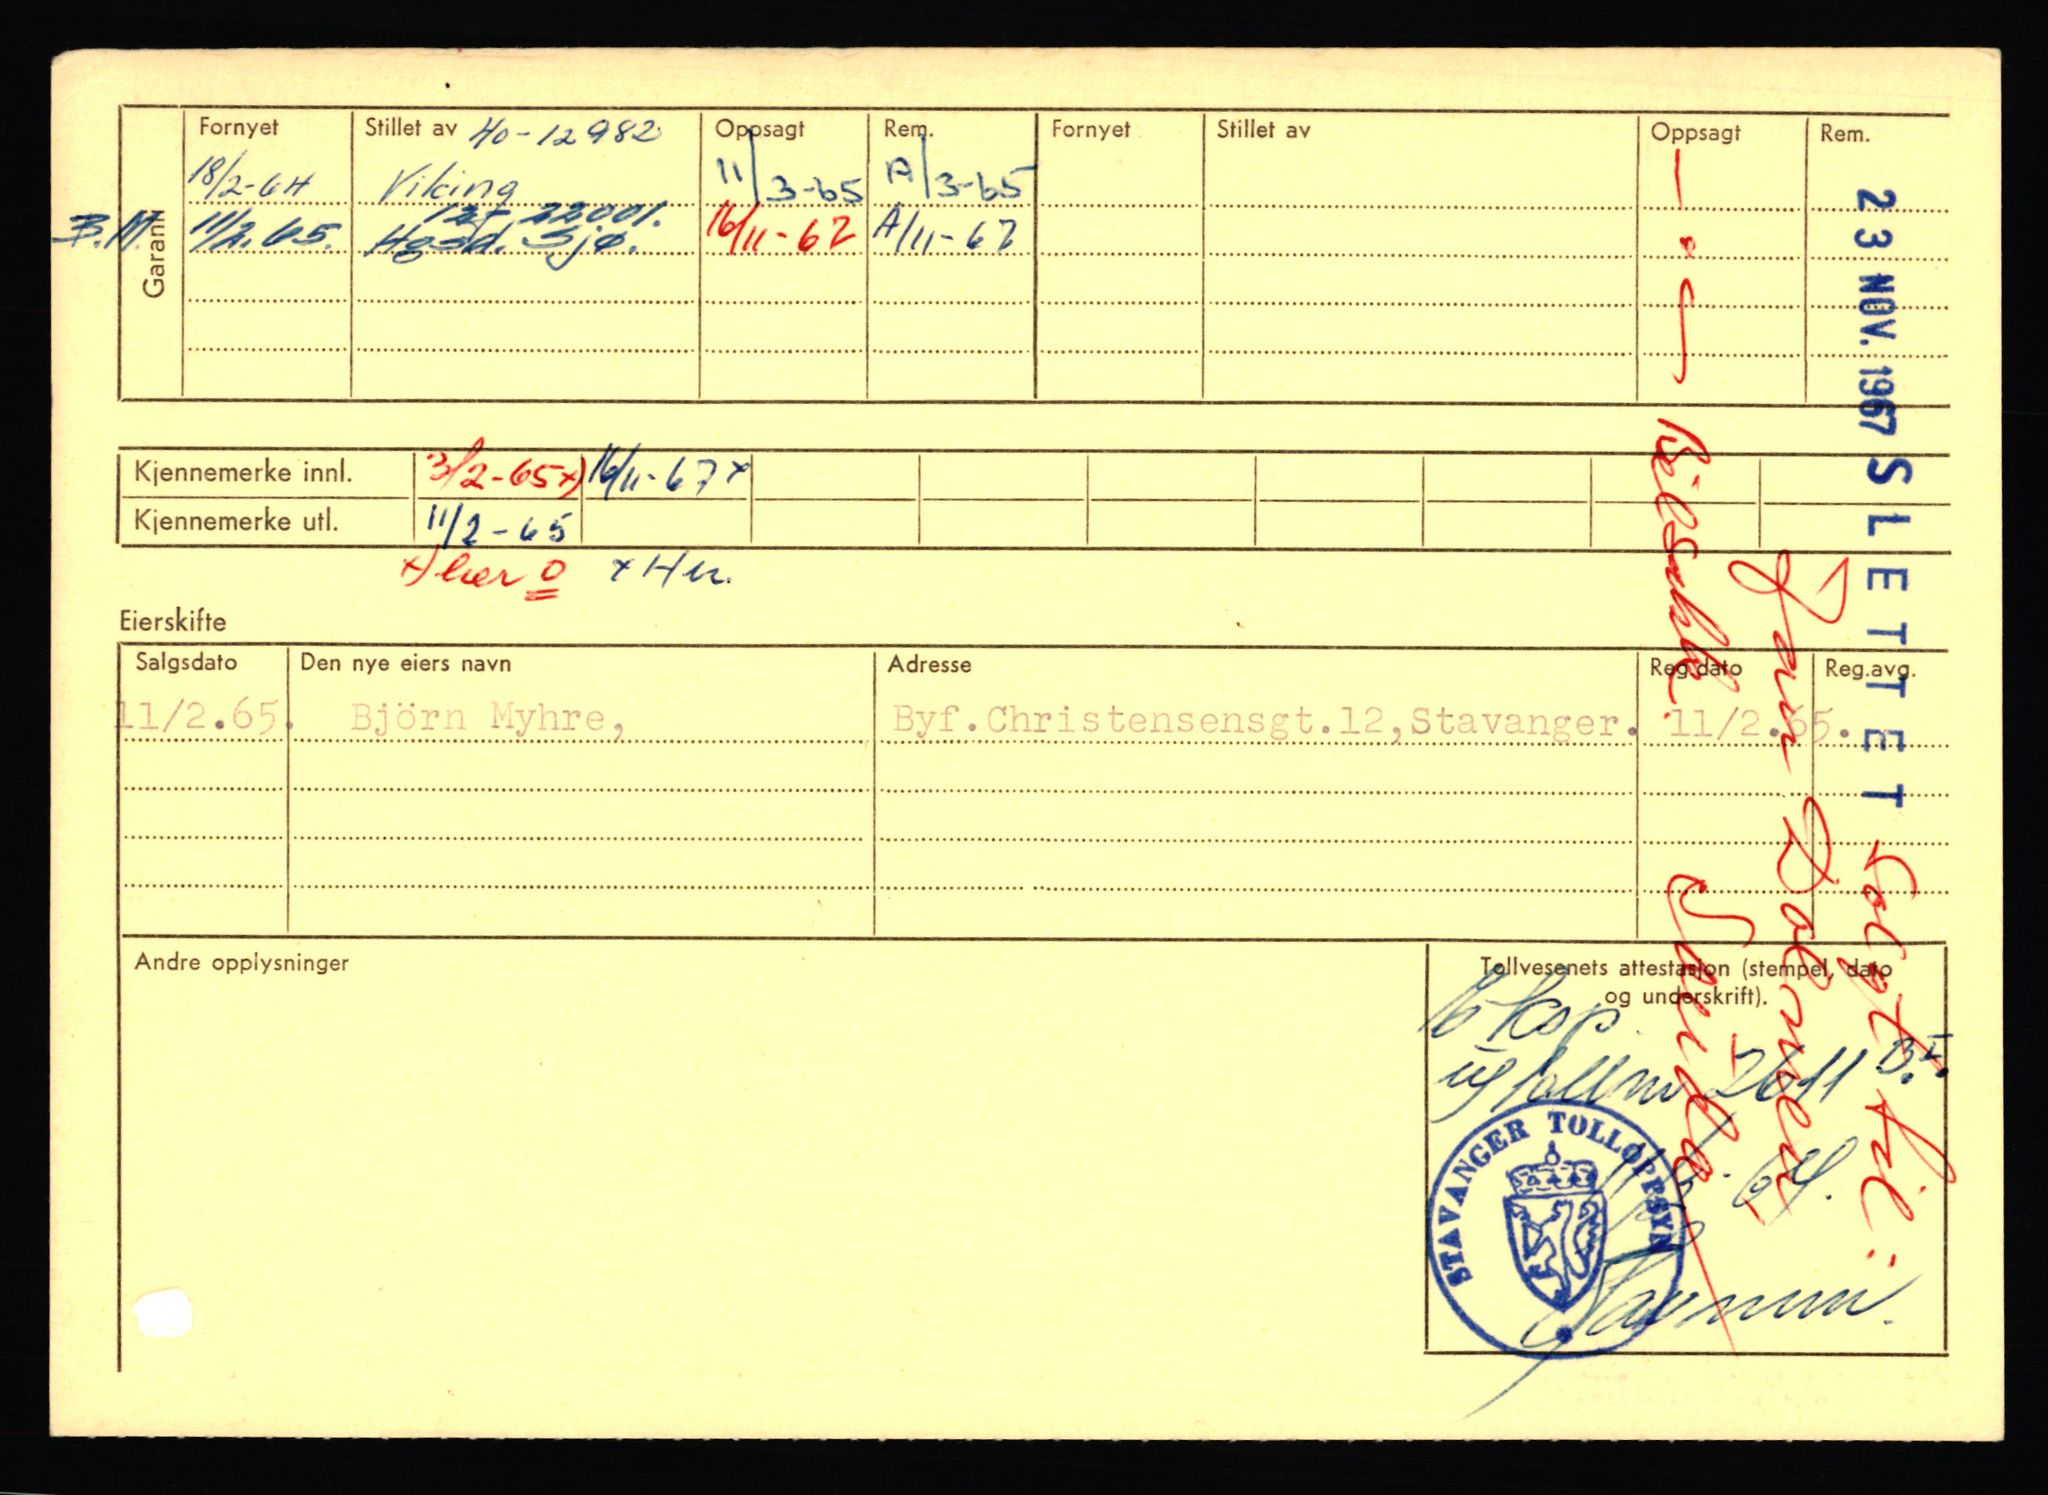 Garanti
Fornyet Stillet av 40-12982 Oppsagt Rem. Fornyet Stillet av Oppsagt Rem.
18/2-64 Viking 11/3-65 A/3-65
127 22001.
B.M. 11/2.65. Hgsd. Sjø. 16/11-67 A/11-67
Kjennemerke innl. 3/2-65 x) 16/11-67 x
Kjennemerke utl. 11/2-65
x) her 0 x Her.
Eierskifte
Salgsdato Den nye eiers navn Adresse Reg.dato Reg.avg.
11/2.65. Björn Myhre, Byf.Christensensgt.12,Stavanger. 11/2.65.
Andre opplysninger
Tollvesenets attestasjon (stempel, dato
og underskrift).
2611 B.I.
STAVANGER TOLLOPPSYN
23 NOV. 1967 SLETTET
Solgt til: